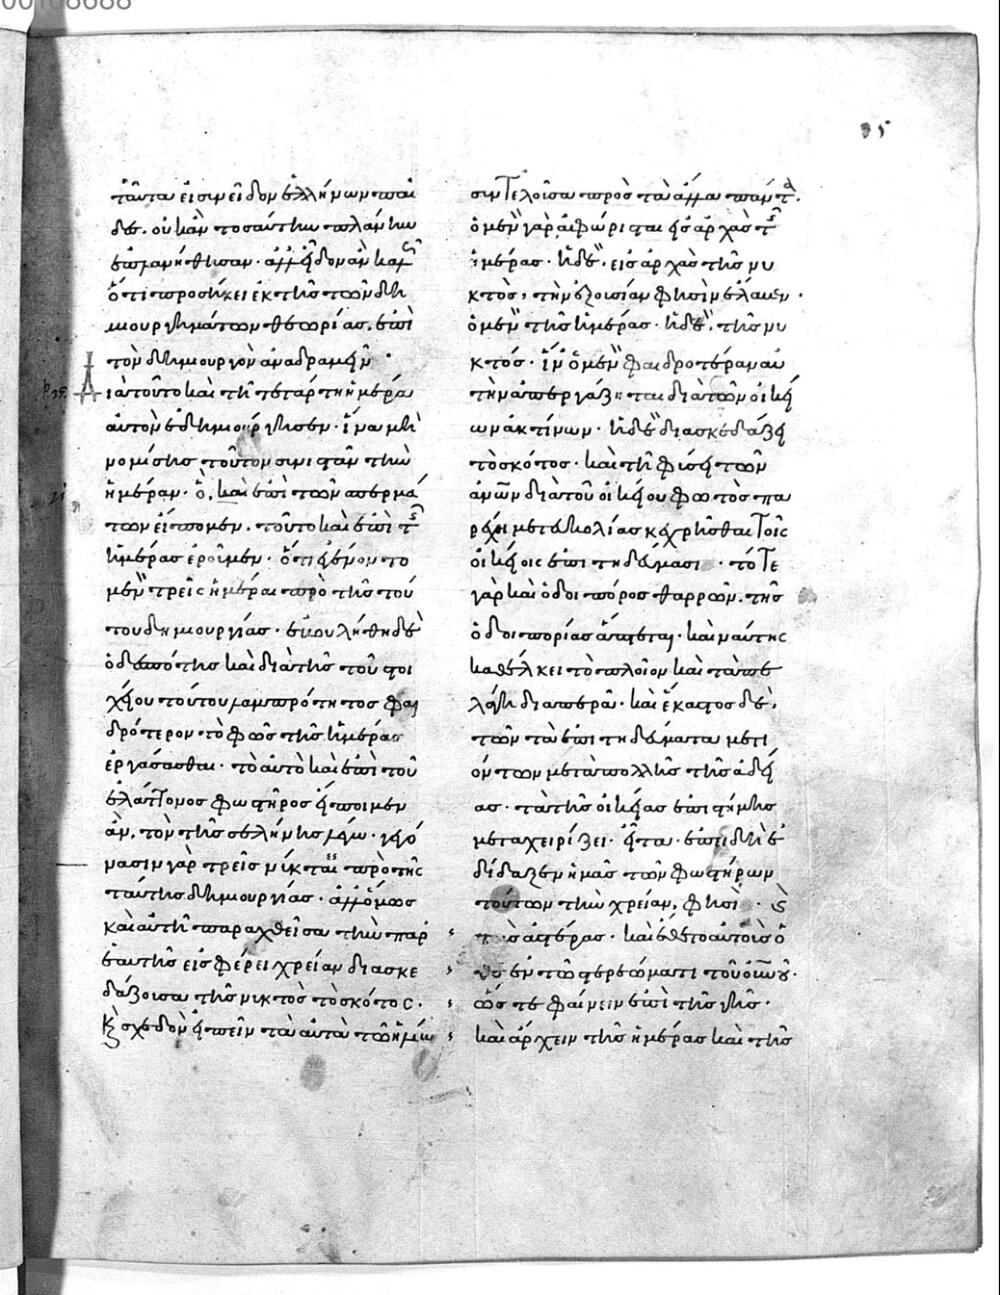 00108688
95
ταῦτα εἰσιν εἶδον ἑλλήνων παῖ
δες. οὐκἂν τοσαύτην πλάνην
ἐπλανήθησαν· ἀλλ' εἶδον ἂν καὶ
ὅτι προσήκει ἐκ τῆς τῶν δη
μιουργημάτων θεωρίας, ἐπὶ
τὸν δημιουργὸν ἀναδραμεῖν·
Διατοῦτο καὶ τῆ τετάρτη ἡμέρα
αὐτὸν ἐδημιούργησεν· ἵνα μὴ
νομίσης τοῦτον συνιστᾶν τὴν
ἡμέραν· ὃ, καὶ ἐπὶ τῶν σπερμά
των εἴπομεν. τοῦτο καὶ ἐπὶ τῆς
ἡμέρας ἐροῦμεν· ὅτι ἐγένοντο
μὲν τρεῖς ἡμέραι πρὸ τῆς τού
του δημιουργίας· ἐβουλήθη δὲ
ὁ δεσπότης καὶ διὰ τῆς τοῦ στοι
χείου τούτου λαμπρότητος φαι
δρότερον τὸ φῶς τῆς ἡμέρας
ἐργάσασθαι· τὸ αὐτὸ καὶ ἐπὶ τοῦ
ἐλάττονος φωστῆρος εἴποιμεν
ἂν, τὸν τῆς σελήνης λέγω· γεγό
νασιν γὰρ τρεῖς νύκται πρὸ τῆς
ταύτης δημιουργίας· ἀλλ' ὅμως
καὶ αὐτὴ παραχθεῖσα τὴν παρ
ἑαυτῆς εἰσφέρει χρείαν διασκε
δάζουσα τῆς νυκτὸς τὸ σκότος·
Κ̀ σχεδὸν εἰπεῖν τὰ αὐτὰ τῶ ἡλίω
συντελοῖσα πρὸς τὰ ἄλλα πάντα.
ὁ μὲν γὰρ ἀφώρισται εἰς ἀρχὰς τῆς
ἡμέρας· ἡ δὲ, εἰς ἀρχὰς τῆς νυ
κτὸς, τὴν ἐξουσίαν φησὶν ἔλαβεν·
ὁ μὲν τῆς ἡμέρας· ἡ δὲ, τῆς νυ
κτός· ἵν' ὁ μὲν φαιδροτέραν αὐ
τὴν ἀπεργάζηται διὰ τῶν οἰκεί
ων ἀκτίνων· ἡ δὲ διασκεδάζει
τὸ σκότος· καὶ τῆ φύσει τῶν
ἀνων διὰ τοῦ οἰκείου φωτὸς πα
ρέχει μετ' εὐκολίας κεχρῆσθαι τοῖς
οἰκείοις ἐπιτηδεύμασι· τότε
γὰρ καὶ ὁδοιπόρος θαρρῶν. τῆς
ὁδοιπορίας ἅπτεται· καὶ ναύτης
καθέλκει τὸ πλοῖον καὶ τὰ πε
λάγη διαπερᾶ· καὶ ἕκαστος δὲ,
τῶν τὰ ἐπιτηδεύματα μετι
όντων μετὰ πολλῆς τῆς ἀδεί
ας· τὰ τῆς οἰκείας ἐπιστήμης
μεταχειρίζει· εἶτα· ἐπειδὴ ἐ
δίδαξεν ἡμᾶς τῶν φωστήρων
τούτων τὴν χρείαν, φησὶ· Κ̀
τοὺς ἀστέρας· καὶ ἔθετο αὐτοὺς ὁ
θς ἐν τῶ στερεώματι τοῦ οὐνοῦ·
ὥστε φαίνειν ἐπὶ τῆς γῆς·
καὶ ἄρχειν τῆς ἡμέρας καὶ τῆς